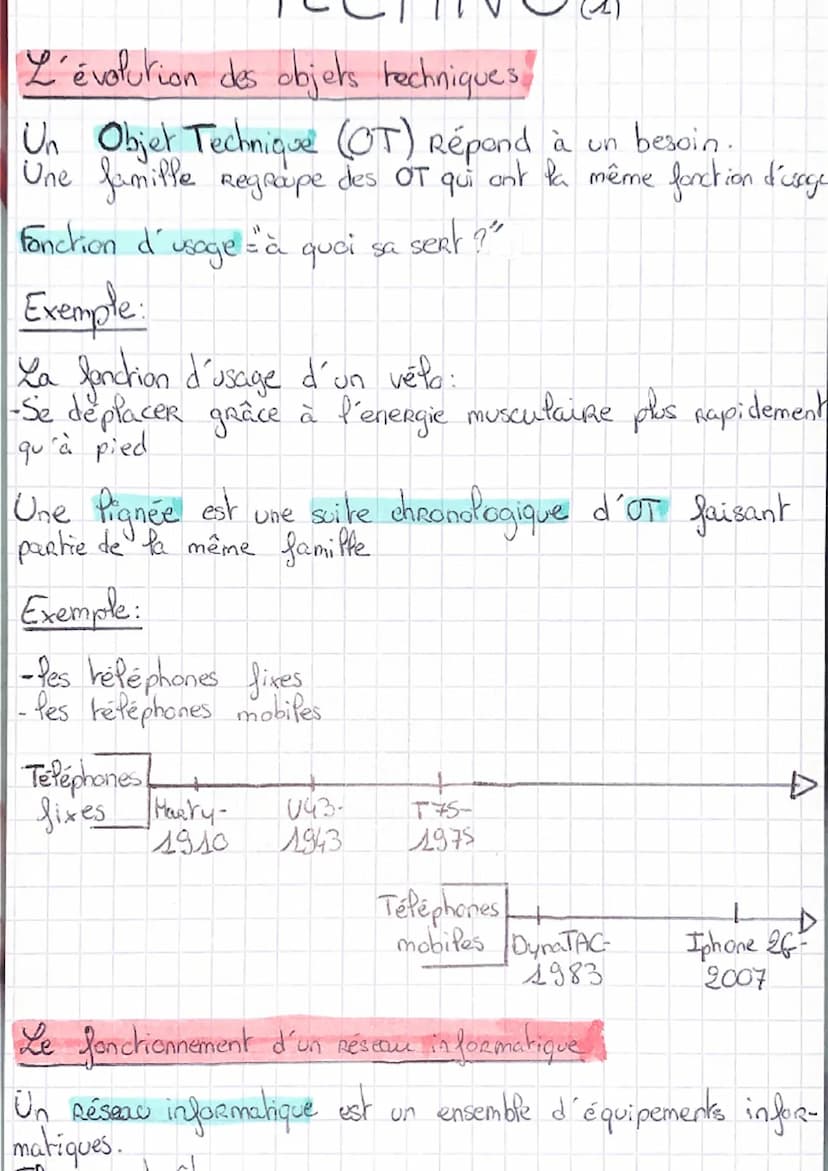 TECHNO (1)
L'évolution des objets techniques
Un Objet Technique (OT) Répond à un besoin.
Une famille Regroupe des OT qui ont la même fonction d'usage
Fonction d'usage = "à quoi sa sert ?"
Exemple:
La fonction d'usage d'un vélo:
-Se déplacer grâce à l'energie musculaire plus rapidement
qu'à pied
Une lignée est une suite chronologique d'OT faisant
partie de la même famille
Exemple:
-les téléphones fixes
- les téléphones mobiles
Téléphones
fixes
Marty-
1910
U43-
1943
T75-
1975
Téléphones
mobiles
DynaTAC-
1983
Iphone 2G-
2007
Le fonctionnement d'un réseau informatique
Un réseau informatique est un ensemble d'équipements infor-
matiques.